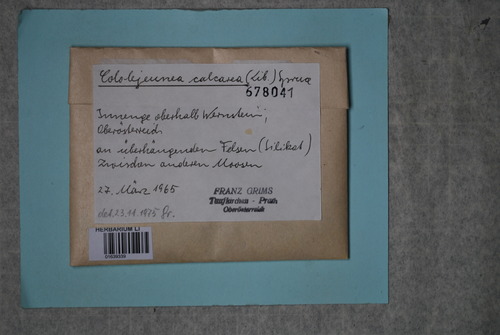 Cololejeunea calcarea (Lib.) Spruce
678041
Innenge oberhalb Wernstein,
Oberösterreich
an überhängenden Felsen (Silikat)
zwischen anderen Moosen
27. März 1965
FRANZ GRIMS
Taufkirchen - Pram
Oberösterreich
det. 23.11.1975 Gr.
HERBARIUM LI